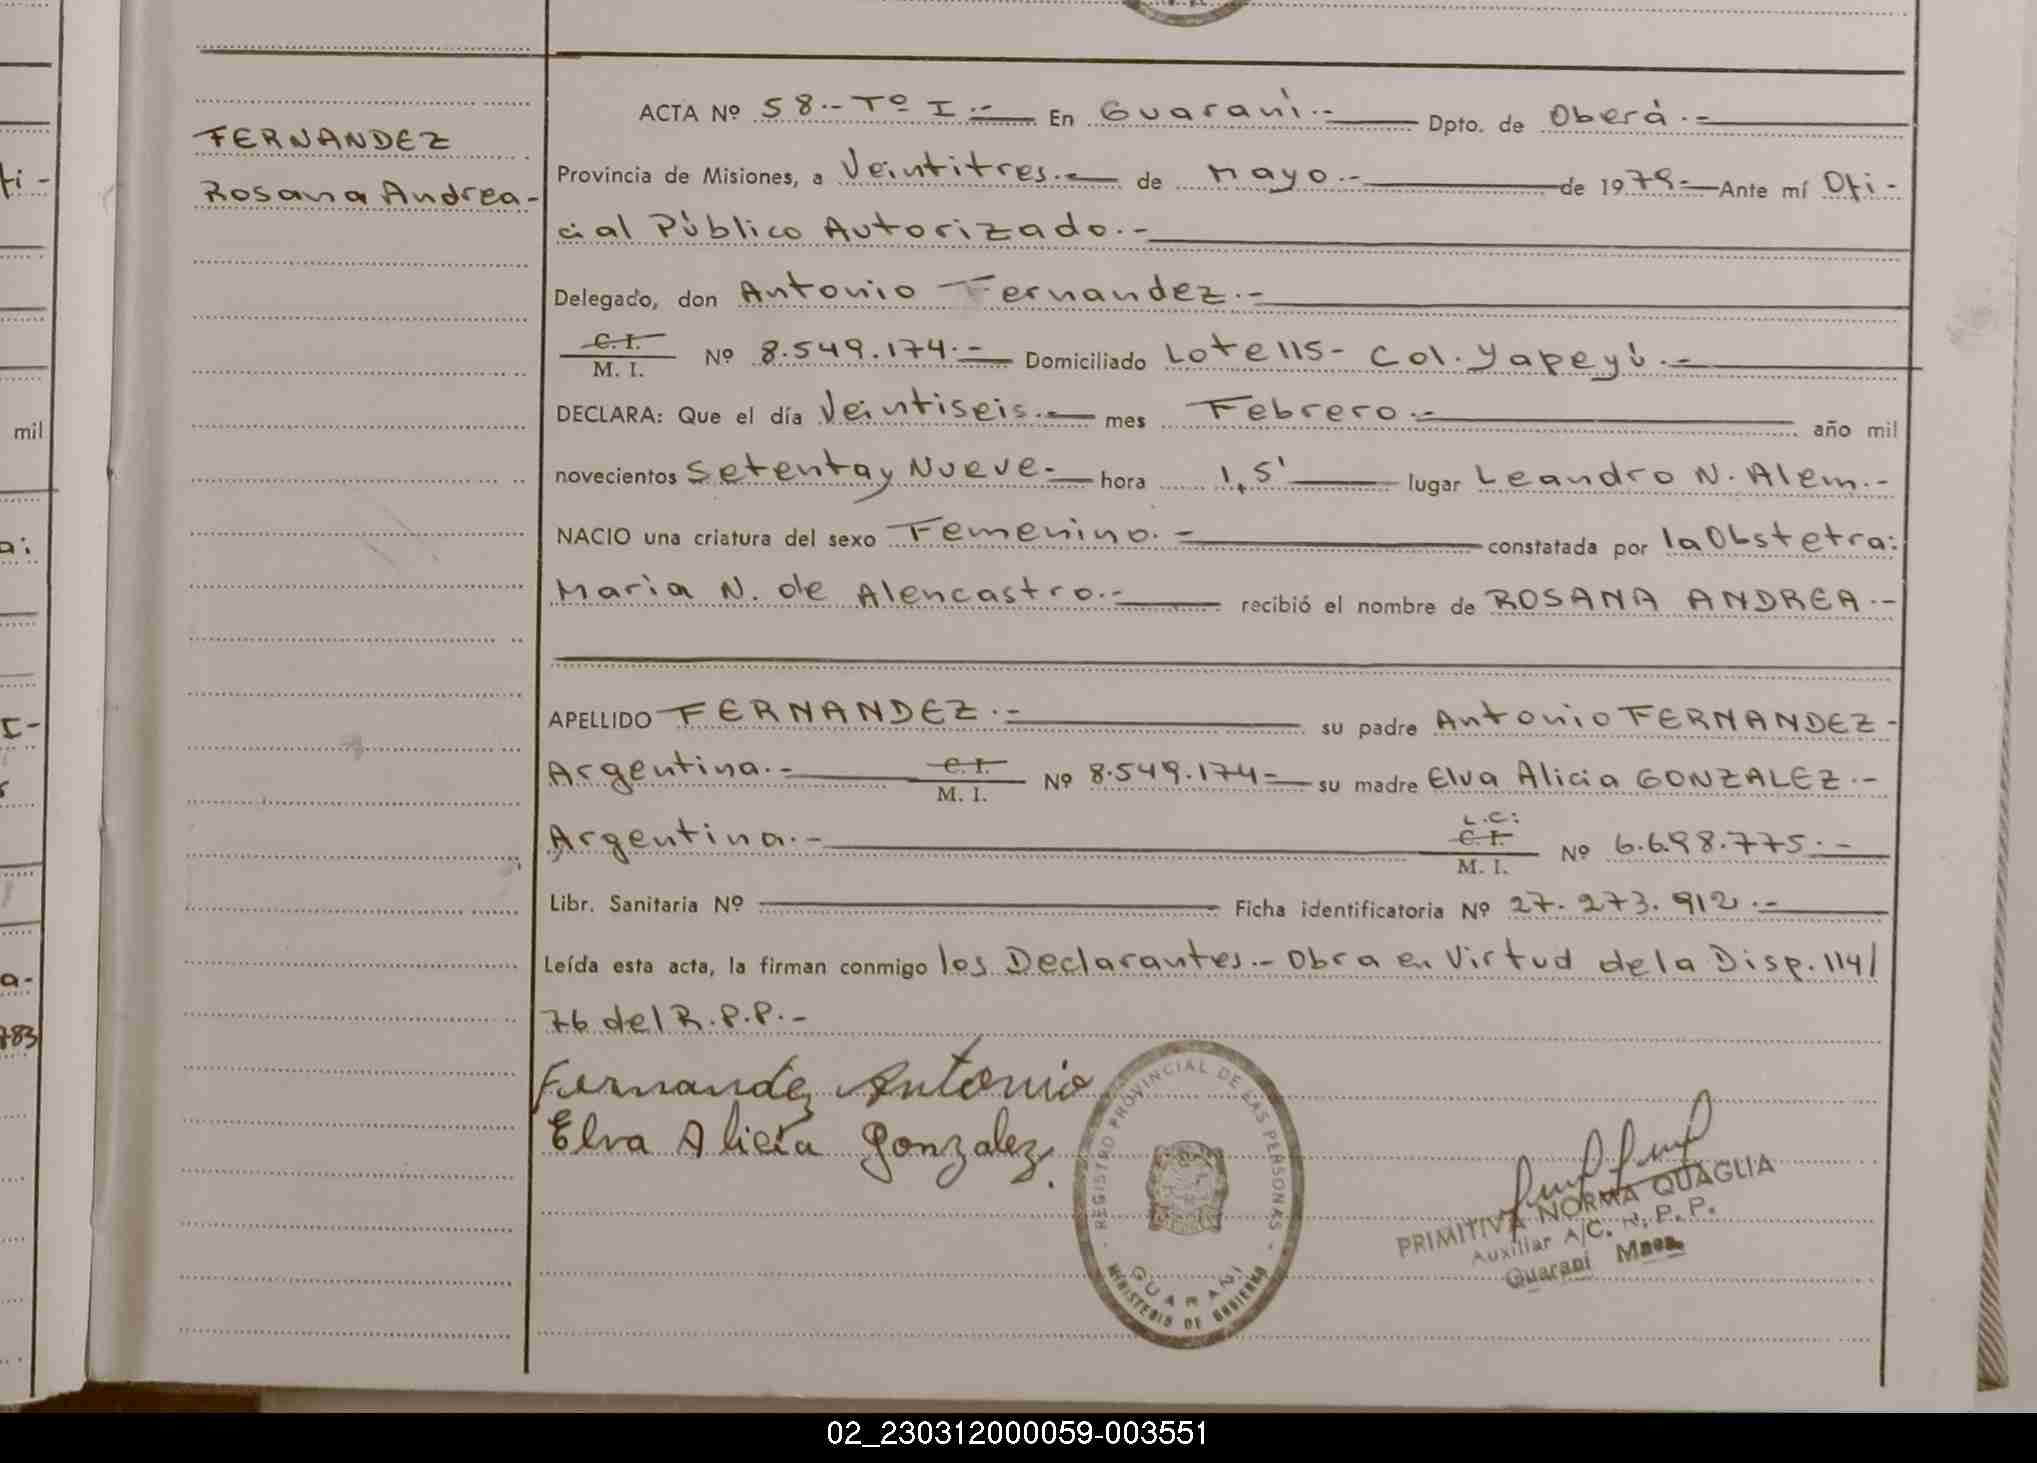 FERNANDEZ
Rosana Andrea-
ACTA Nº 58.-Tº I.- En Guaraní.- Dpto. de Oberá.-
Provincia de Misiones, a Veintitres.- de Mayo.- de 1979.- Ante mí Ofi-
cial Público Autorizado.-
Delegado, don Antonio Fernandez.-
C. I.
M. I. Nº 8.549.174.- Domiciliado Lote 115- Col. Yapeyú.-
DECLARA: Que el día Veintiseis.- mes Febrero.- año mil
novecientos Setenta y Nueve- hora 1,5' lugar Leandro N. Alem.-
NACIO una criatura del sexo Femenino.- constatada por la Obstetra:
Maria N. de Alencastro.- recibió el nombre de ROSANA ANDREA.-
APELLIDO FERNANDEZ.- su padre Antonio FERNANDEZ-
Argentina.- C. I. M. I. Nº 8.549.174- su madre Elva Alicia GONZALEZ.-
Argentina.- L.C: C. I. M. I. Nº 6.698.775.-
Libr. Sanitaria Nº Ficha identificatoria Nº 27.273.912.-
Leída esta acta, la firman conmigo los Declarantes.- Obra en Virtud de la Disp. 114/
76 del R.P.P.-
Fernandez Antonio
Elva Alicia Gonzalez.
REGISTRO PROVINCIAL DE LAS PERSONAS
GUARANI
MINISTERIO DE GOBIERNO
PRIMITIVA NORMA QUAGLIA
Auxiliar A/C. R. P. P.
Guaraní Mnes.
mil
783
02_230312000059-003551